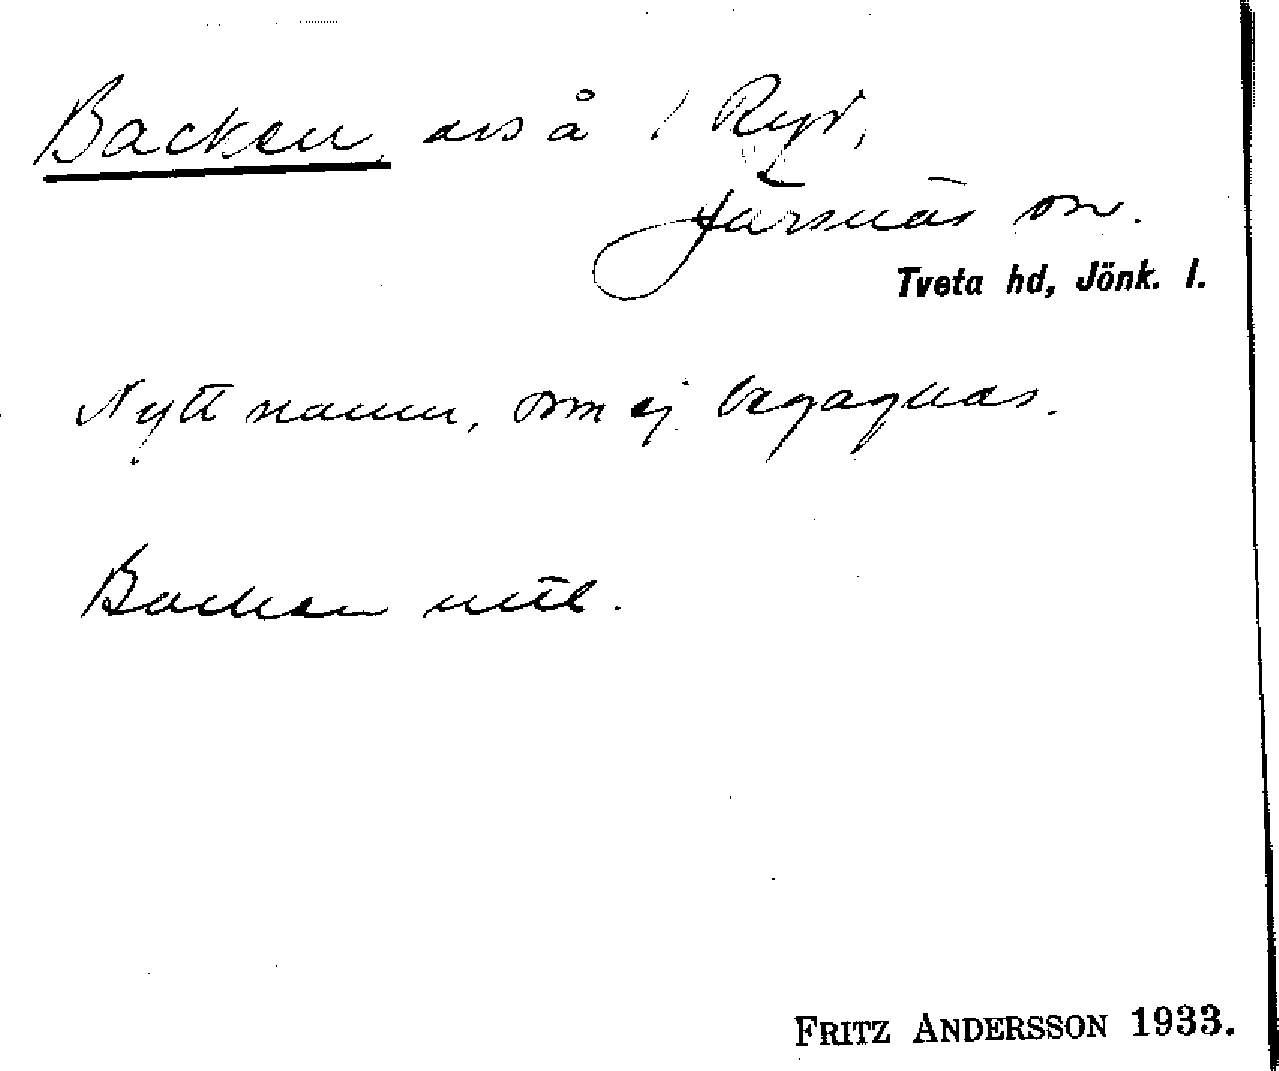 Backen, avs å 1 Ryd,
Järsnäs sn.
Tveta hd, Jönk. l.
Nytt namn, som ej begagnas.
Backen uttl.
FRITZ ANDERSSON 1933.